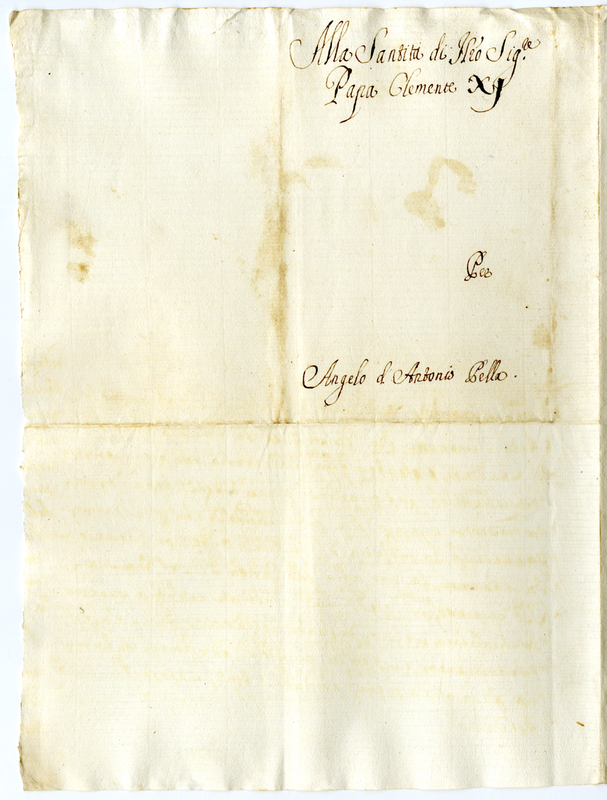 Alla Santità di Nro Sig.re
Papa Clemente XI
Per
Angelo d'Antonio Pella.